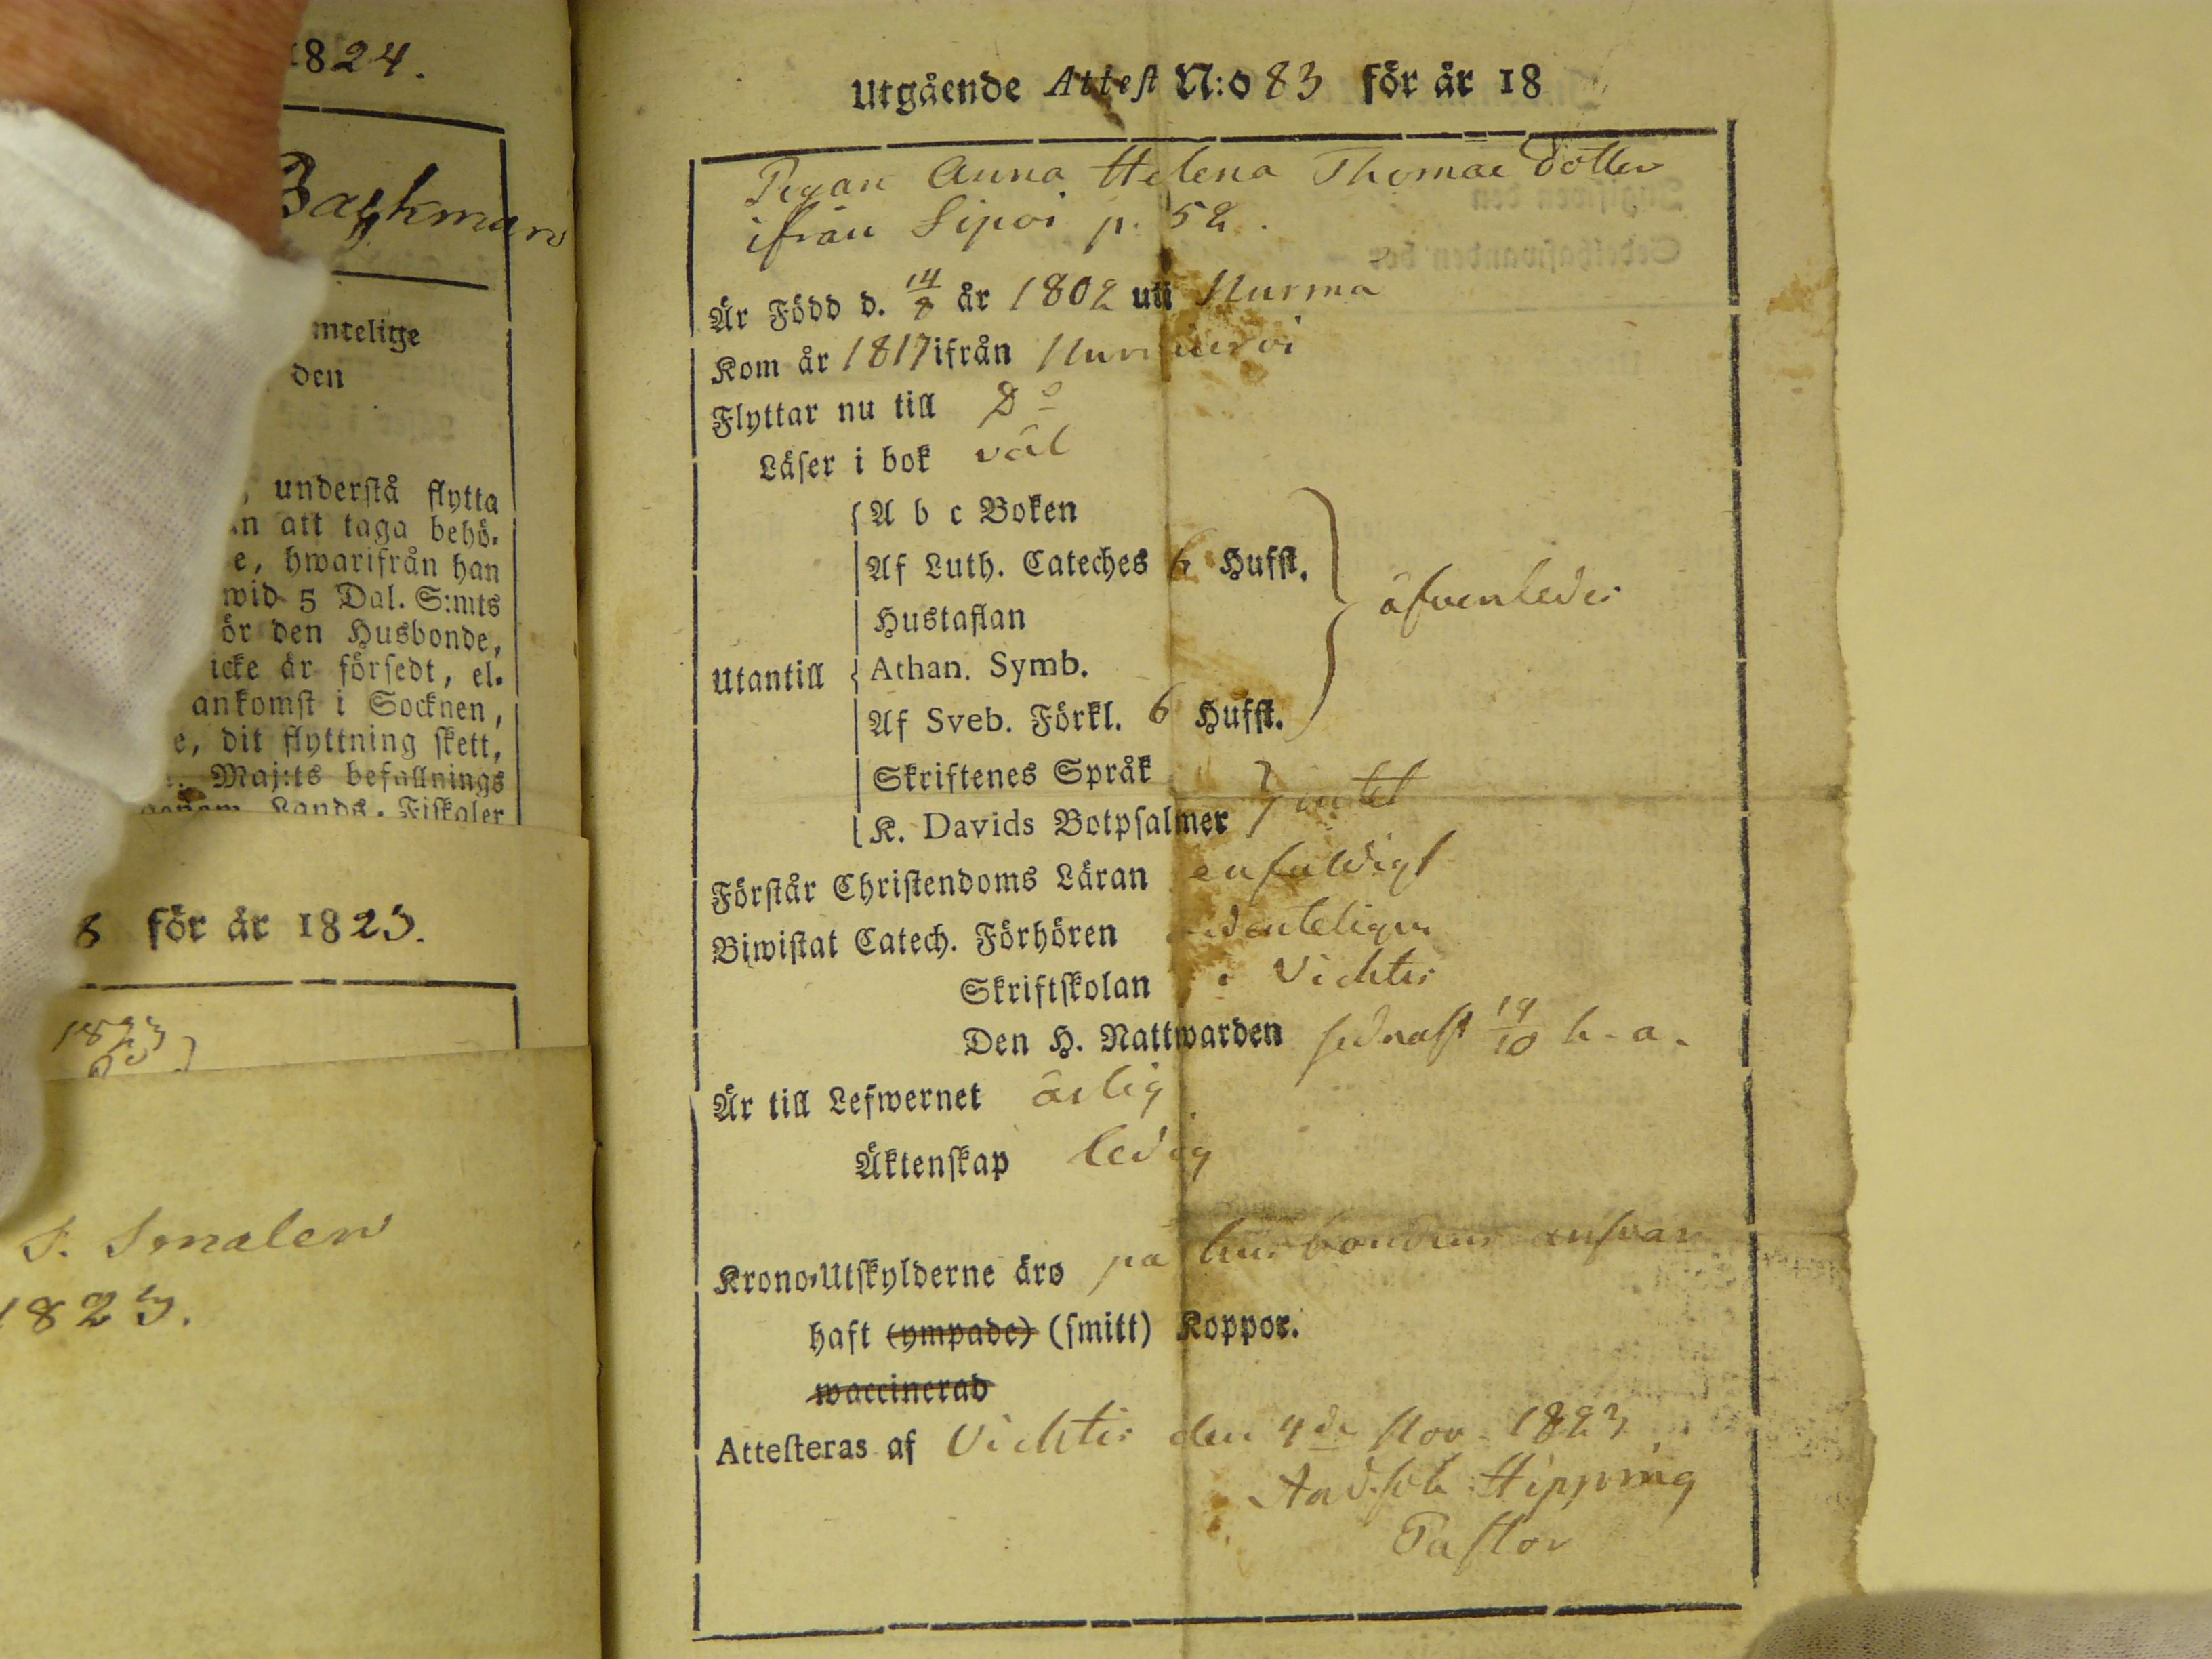 1824.
Backman
mtelige
den
, understå flytta
n att taga behö-
e, hwarifrån han
wid 5 Dal. S:mts
ör den Husbonde,
icke är försedt, el-
ankomst i Socknen,
e, dit flyttning skett,
Maj:ts befallnings
genom Lands-Fiskaler
8 för år 1823.
1823
S. Smalen
1823.
Utgående Attest N:o 83 för år 18
Pigan Anna Helena Thomae Dotter
ifrån Sipoi p. 52.
Är Född d. 14/8 år 1802 uti Nurma
Kom år 1817 ifrån Nurmijervi
Flyttar nu till Do
Läser i bok väl
A b c Boken
Af Luth. Cateches 6 Hufst.
Hustaflan
äfvenledes
Utantill
Athan. Symb.
Af Sveb. Förkl. 6 Hufst.
Skriftenes Språk
K. Davids Botpsalmer intet
Förstår Christendoms Läran enfaldigt
Biwistat Catech. Förhören ordenteligen
Skriftskolan i Vichtis
Den H. Nattwarden sednast 19/10 h. a.
Är till Lefwernet ärlig
Äktenskap ledig
Krono-Utskylderne äro på husbondens ansvar
haft (ympade) (smitt) Koppor.
waccinerad
Attesteras af Vichtis den 4de Nov. 1823
Hipping
Pastor